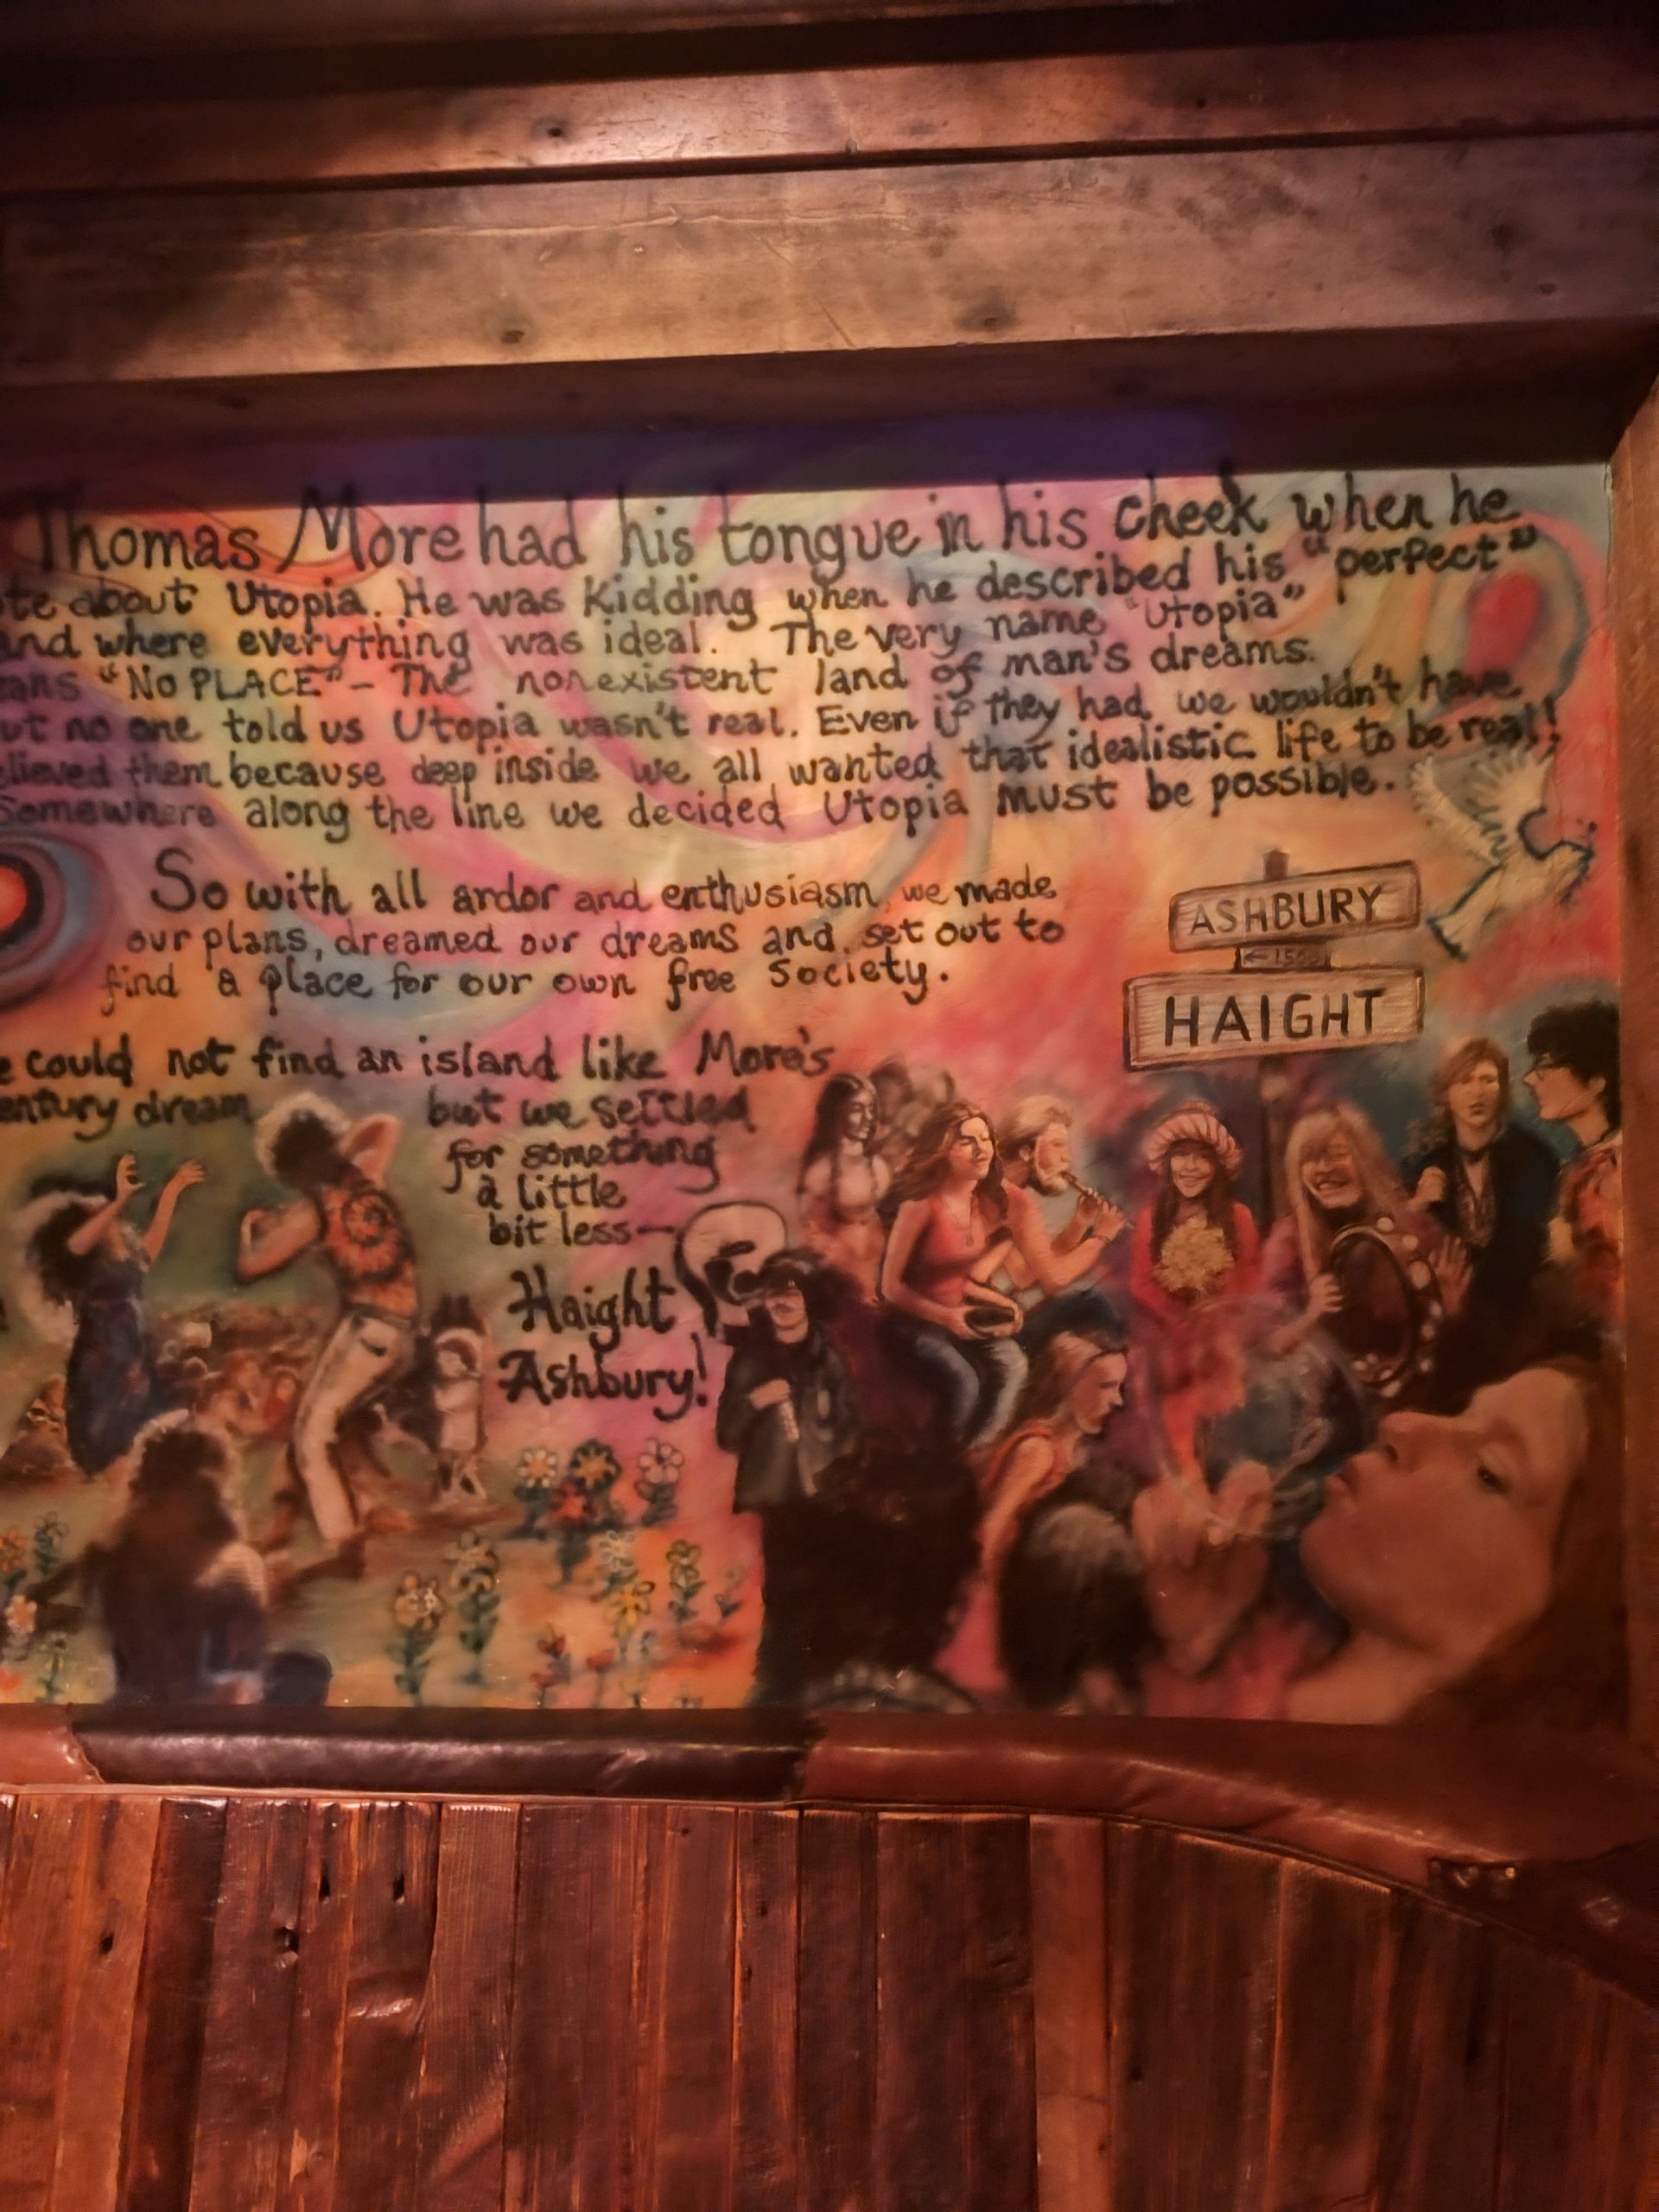 Thomas More had his tongue in his cheek when he
te about Utopia. He was Kidding when he described his "perfect"
and where everything was ideal. The very name "Utopia"
ans "NO PLACE" - The nonexistent land of man's dreams.
ut no one told us Utopia wasn't real. Even if they had, we wouldn't have
elieved them because deep inside we all wanted that idealistic life to be real!
Somewhere along the line we decided Utopia must be possible.
So with all ardor and enthusiasm, we made
our plans, dreamed our dreams and, set out to
find a place for our own free Society.
e could not find an island like More's
entury dream but we settled
for something
a little
bit less—
Haight
Ashbury!
ASHBURY
HAIGHT